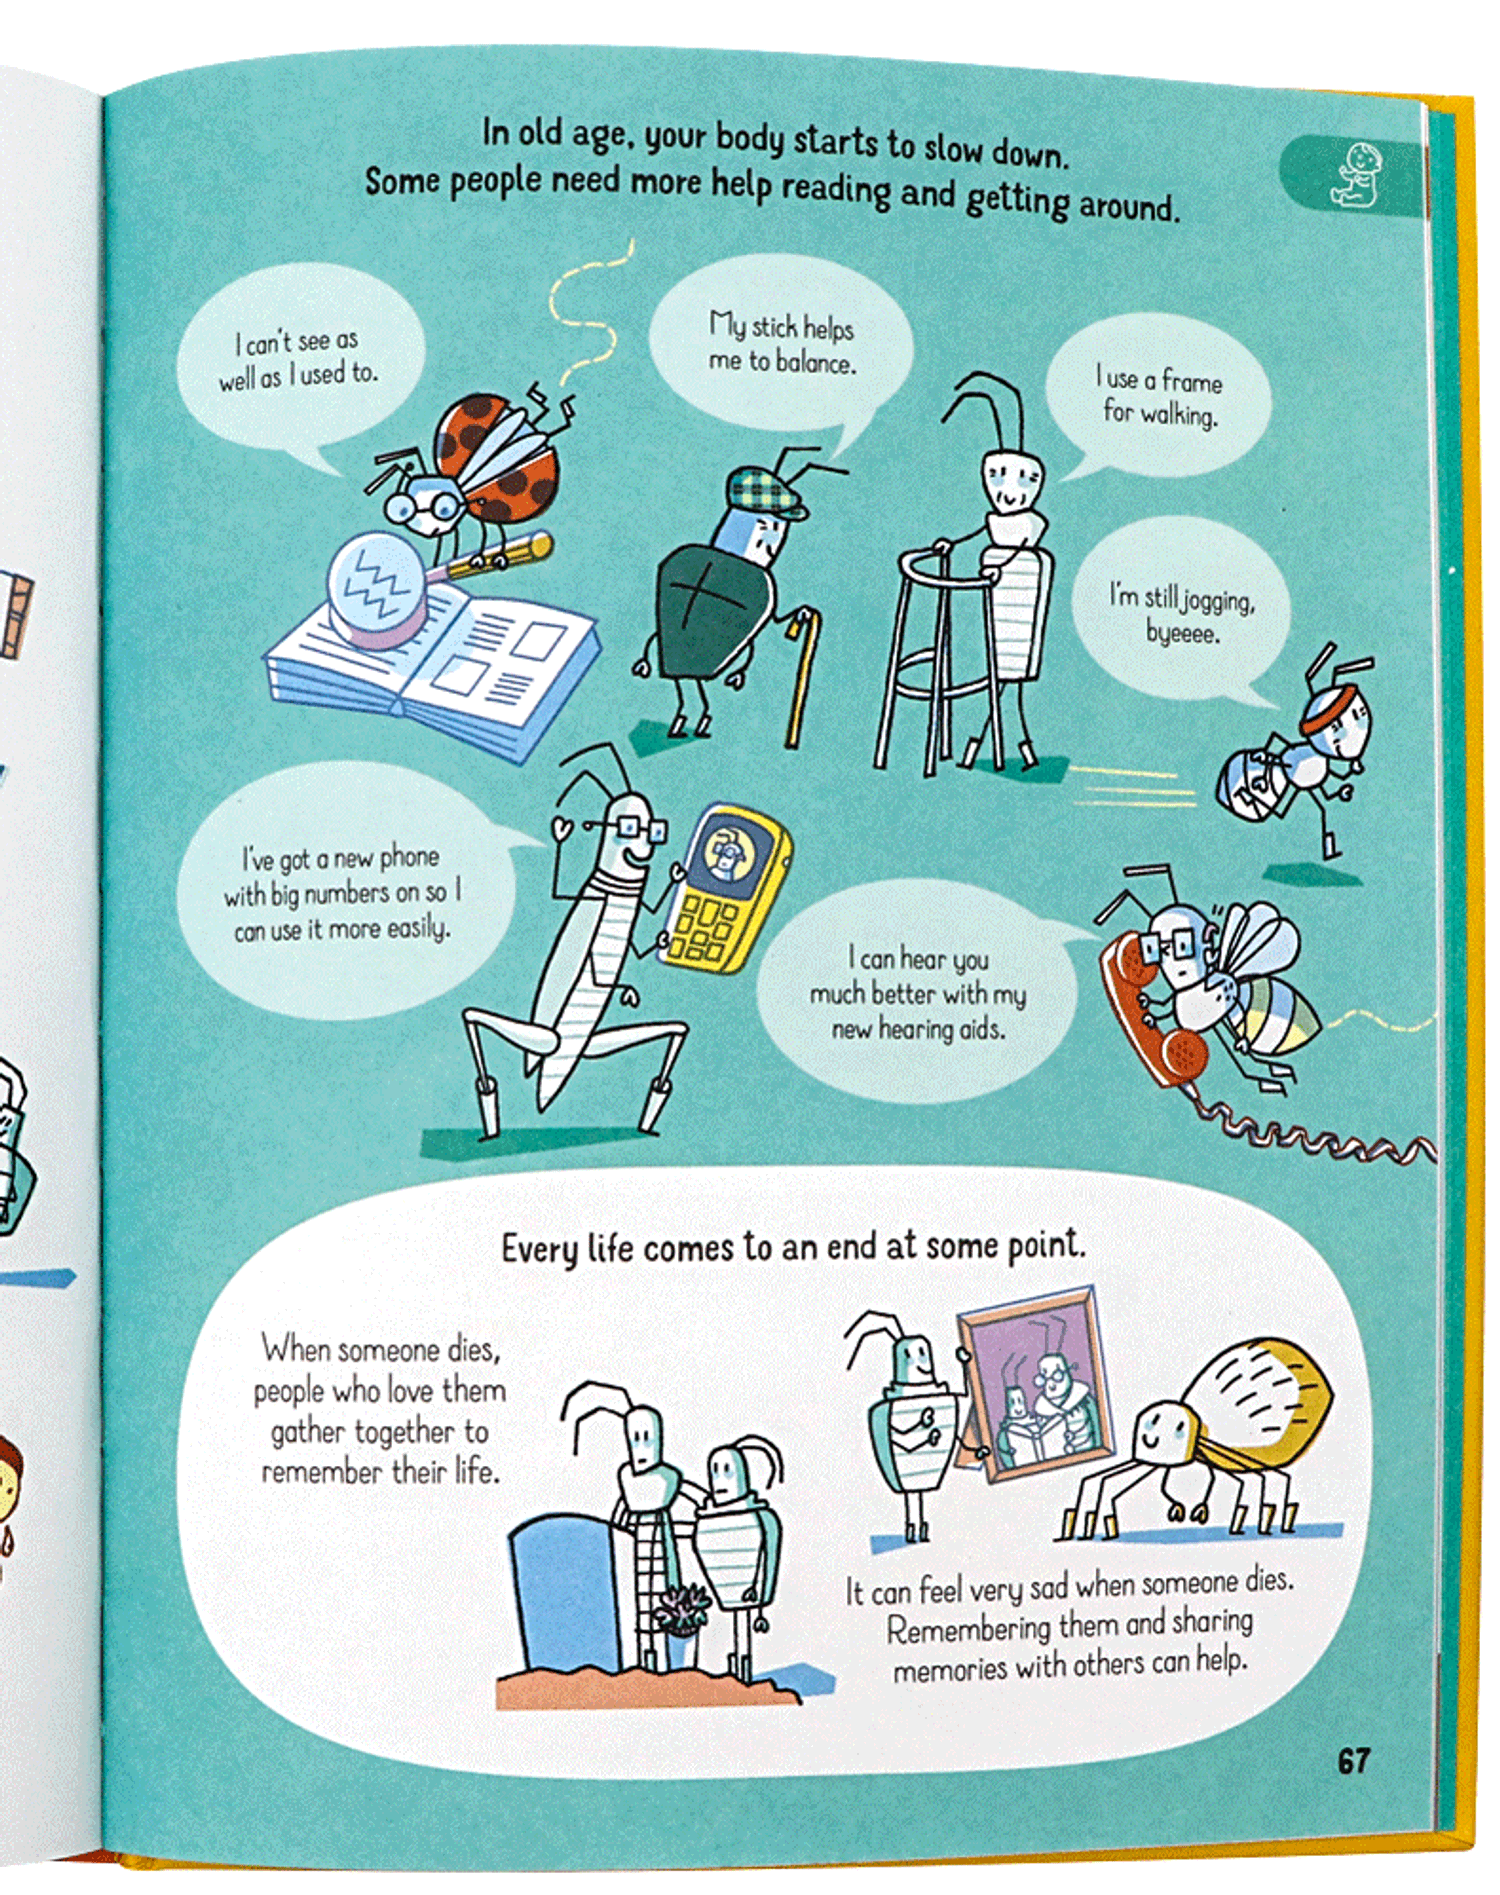 In old age, your body starts to slow down.
Some people need more help reading and getting around.
I can't see as
well as I used to.
My stick helps
me to balance.
I use a frame
for walking.
I'm still jogging,
byeeee.
I've got a new phone
with big numbers on so I
can use it more easily.
I can hear you
much better with my
new hearing aids.
Every life comes to an end at some point.
When someone dies,
people who love them
gather together to
remember their life.
It can feel very sad when someone dies.
Remembering them and sharing
memories with others can help.
67